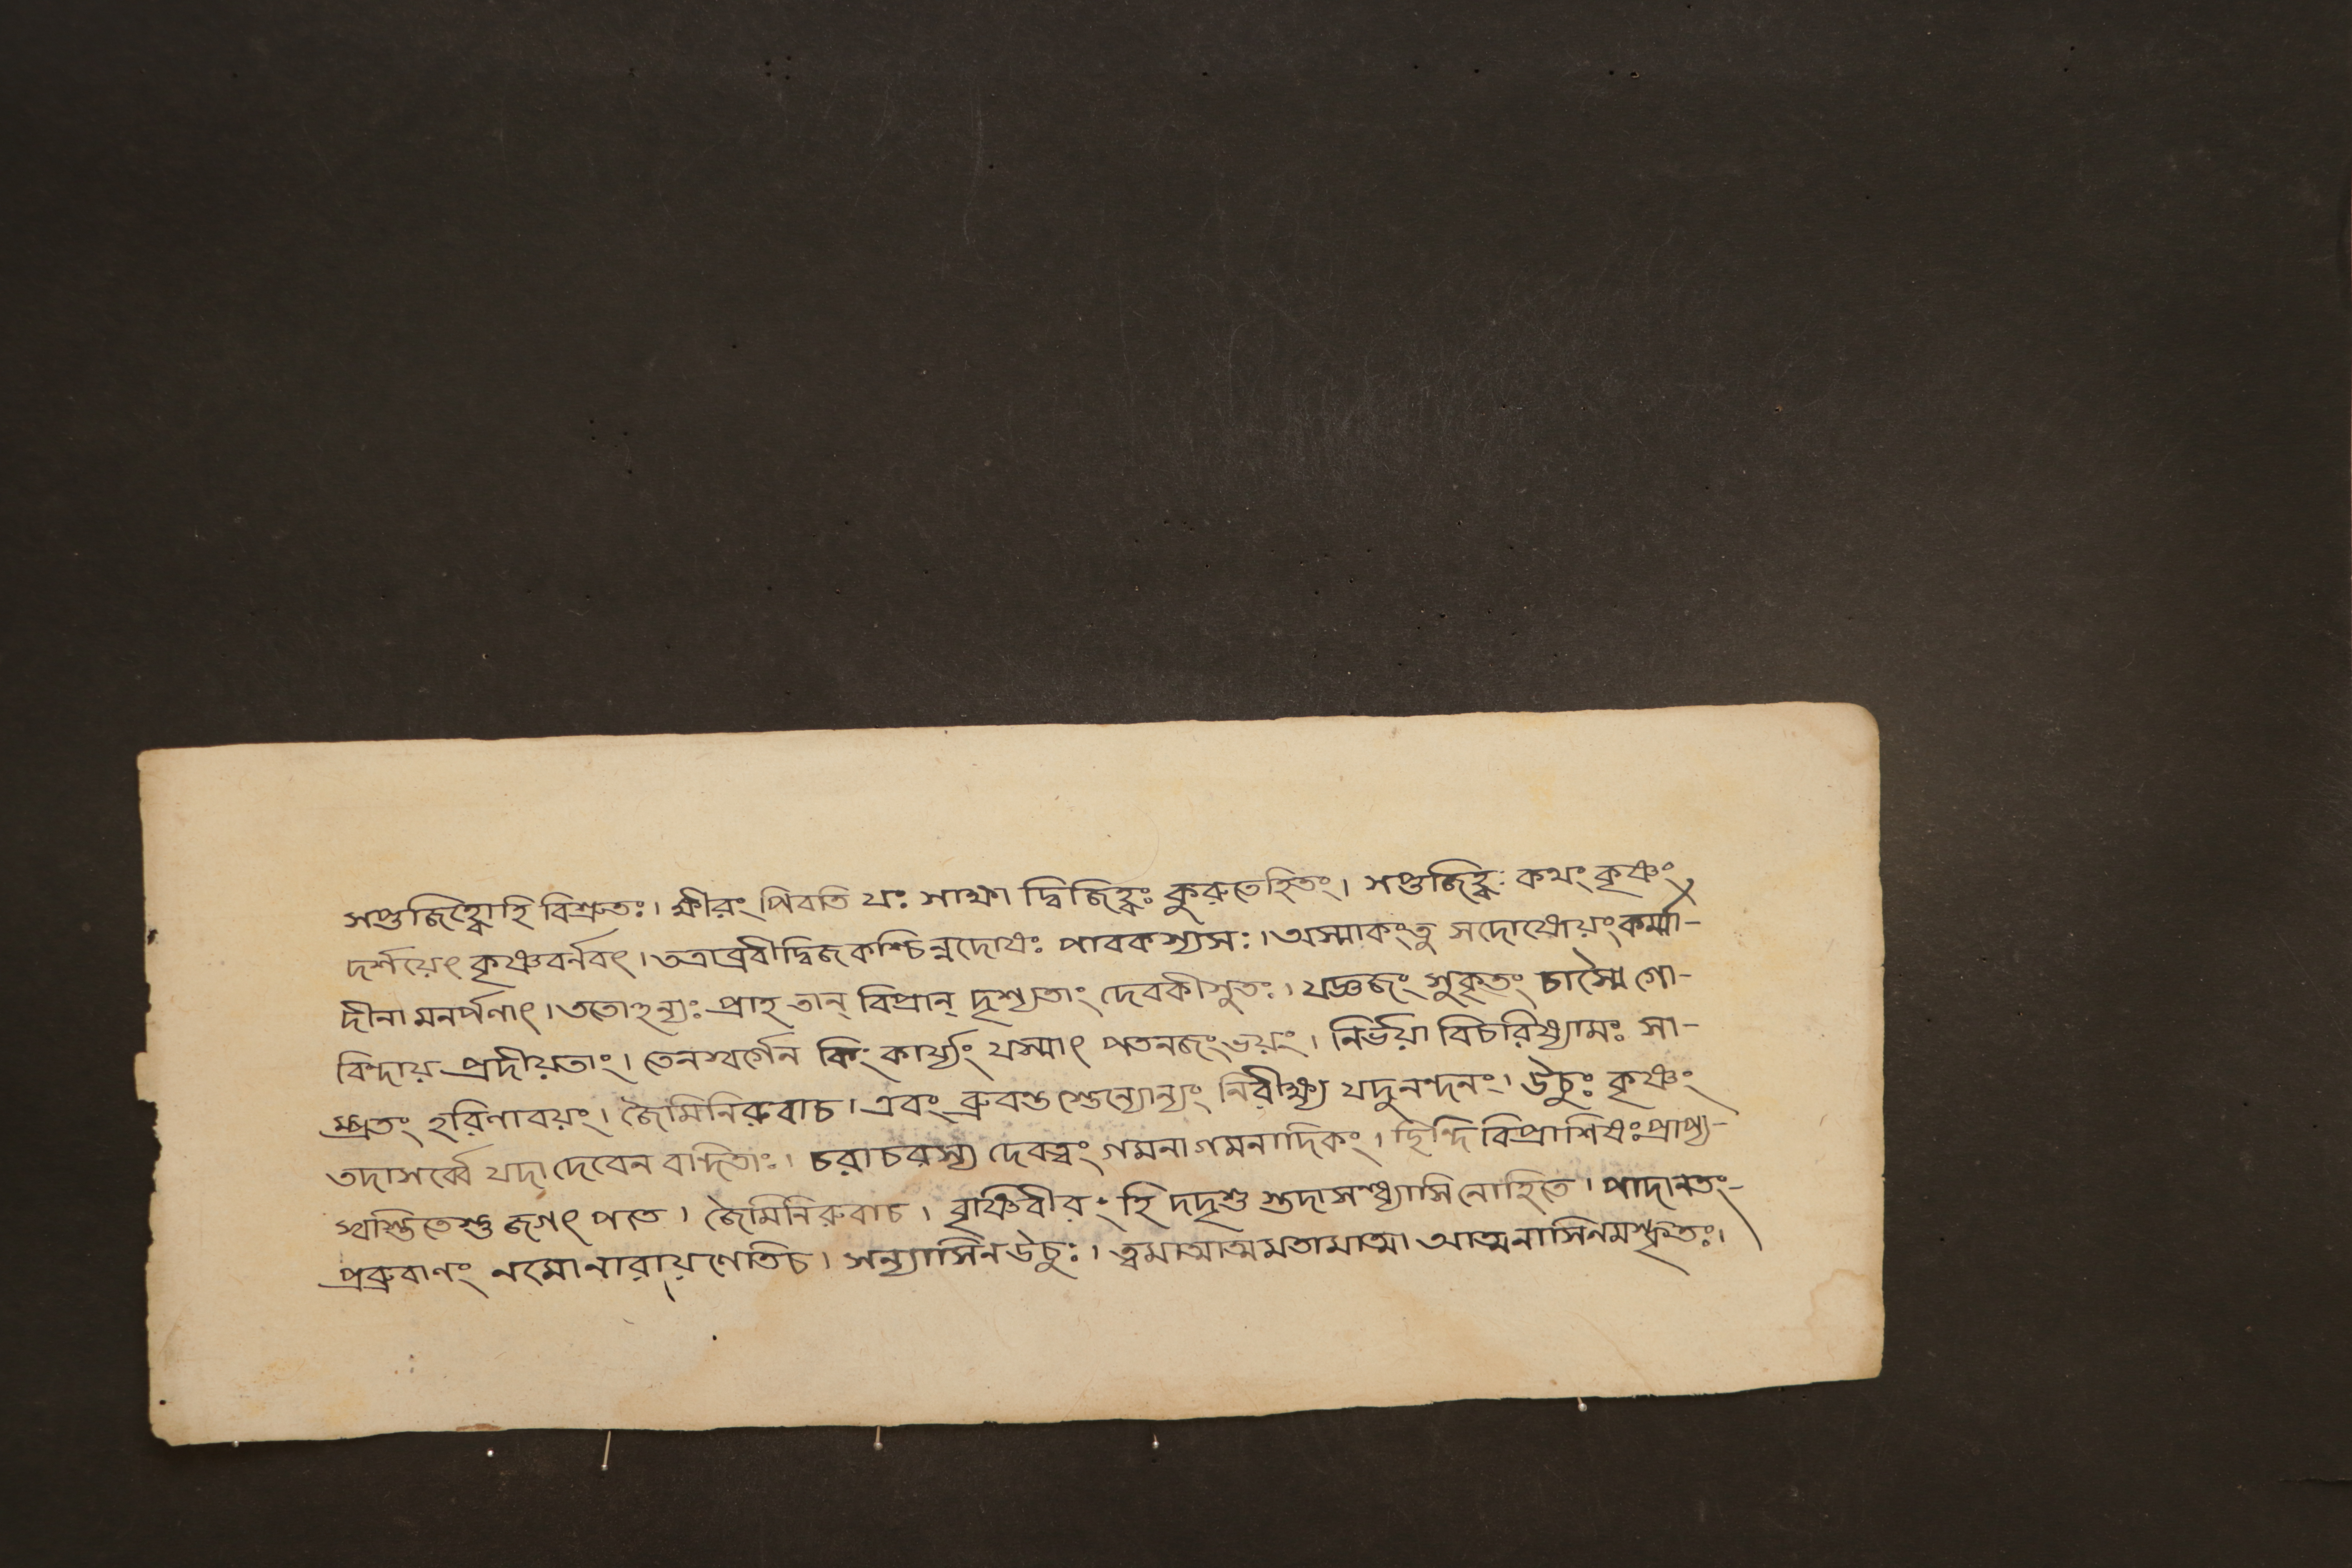 সপ্তজিহ্বোহি বিশ্রুতঃ। ক্ষীরং পিবতি যঃ সাক্ষা দ্বিজিহ্বঃ কুরুতেহিতং। সপ্তজিহ্বঃ কথং কৃষ্ণং
দর্শয়েৎ কৃষ্ণবর্নবৎ। তত্রাব্রবীদ্বিজকশ্চিন্নদোষঃ পাবকস্যসঃ। অস্মাকংতু সদোষোয়ং কর্ম্মা-
দীনা মনর্পণাৎ। ততোঽন্যঃ প্রাহ তান্ বিপ্রান্ দৃশ্যতাং দেবকীসুতঃ। যজ্ঞজং সুকৃতং চাস্মৈ গো-
বিন্দায় প্রদীয়তাং। তেনস্বর্গেন কিং কার্য্যং যস্মাৎ পতনজংভয়ং। নির্ভয়া বিচরিষ্যামঃ সা-
ম্প্রতং হরিণাবয়ং। জৈমিনিরুবাচ। এবং ব্রুবন্ত স্তেন্যোন্যং নিরীক্ষ্য যদুনন্দনং। উচুঃ কৃষ্ণং
তদাসর্ব্বে যদা দেবেন বন্দিতাঃ। চরাচরস্য দেবত্বং গমনাগমনাদিকং। ছিন্দি বিপ্রাশিষঃ প্রাপ্য-
স্বস্তিতেস্তু জগৎ পতে। জৈমিনিরুবাচ। বৃষ্ণিবীরং হি দদৃশু স্তদাসন্ন্যাসিনোহিতে। পাদানতং-
প্রব্রুবাণং নমোনারায়ণেতিচ। সন্ন্যাসিনউচুঃ। ত্বমাত্মাত্মমতামাত্মা আত্মনাসিনমস্কৃতঃ।